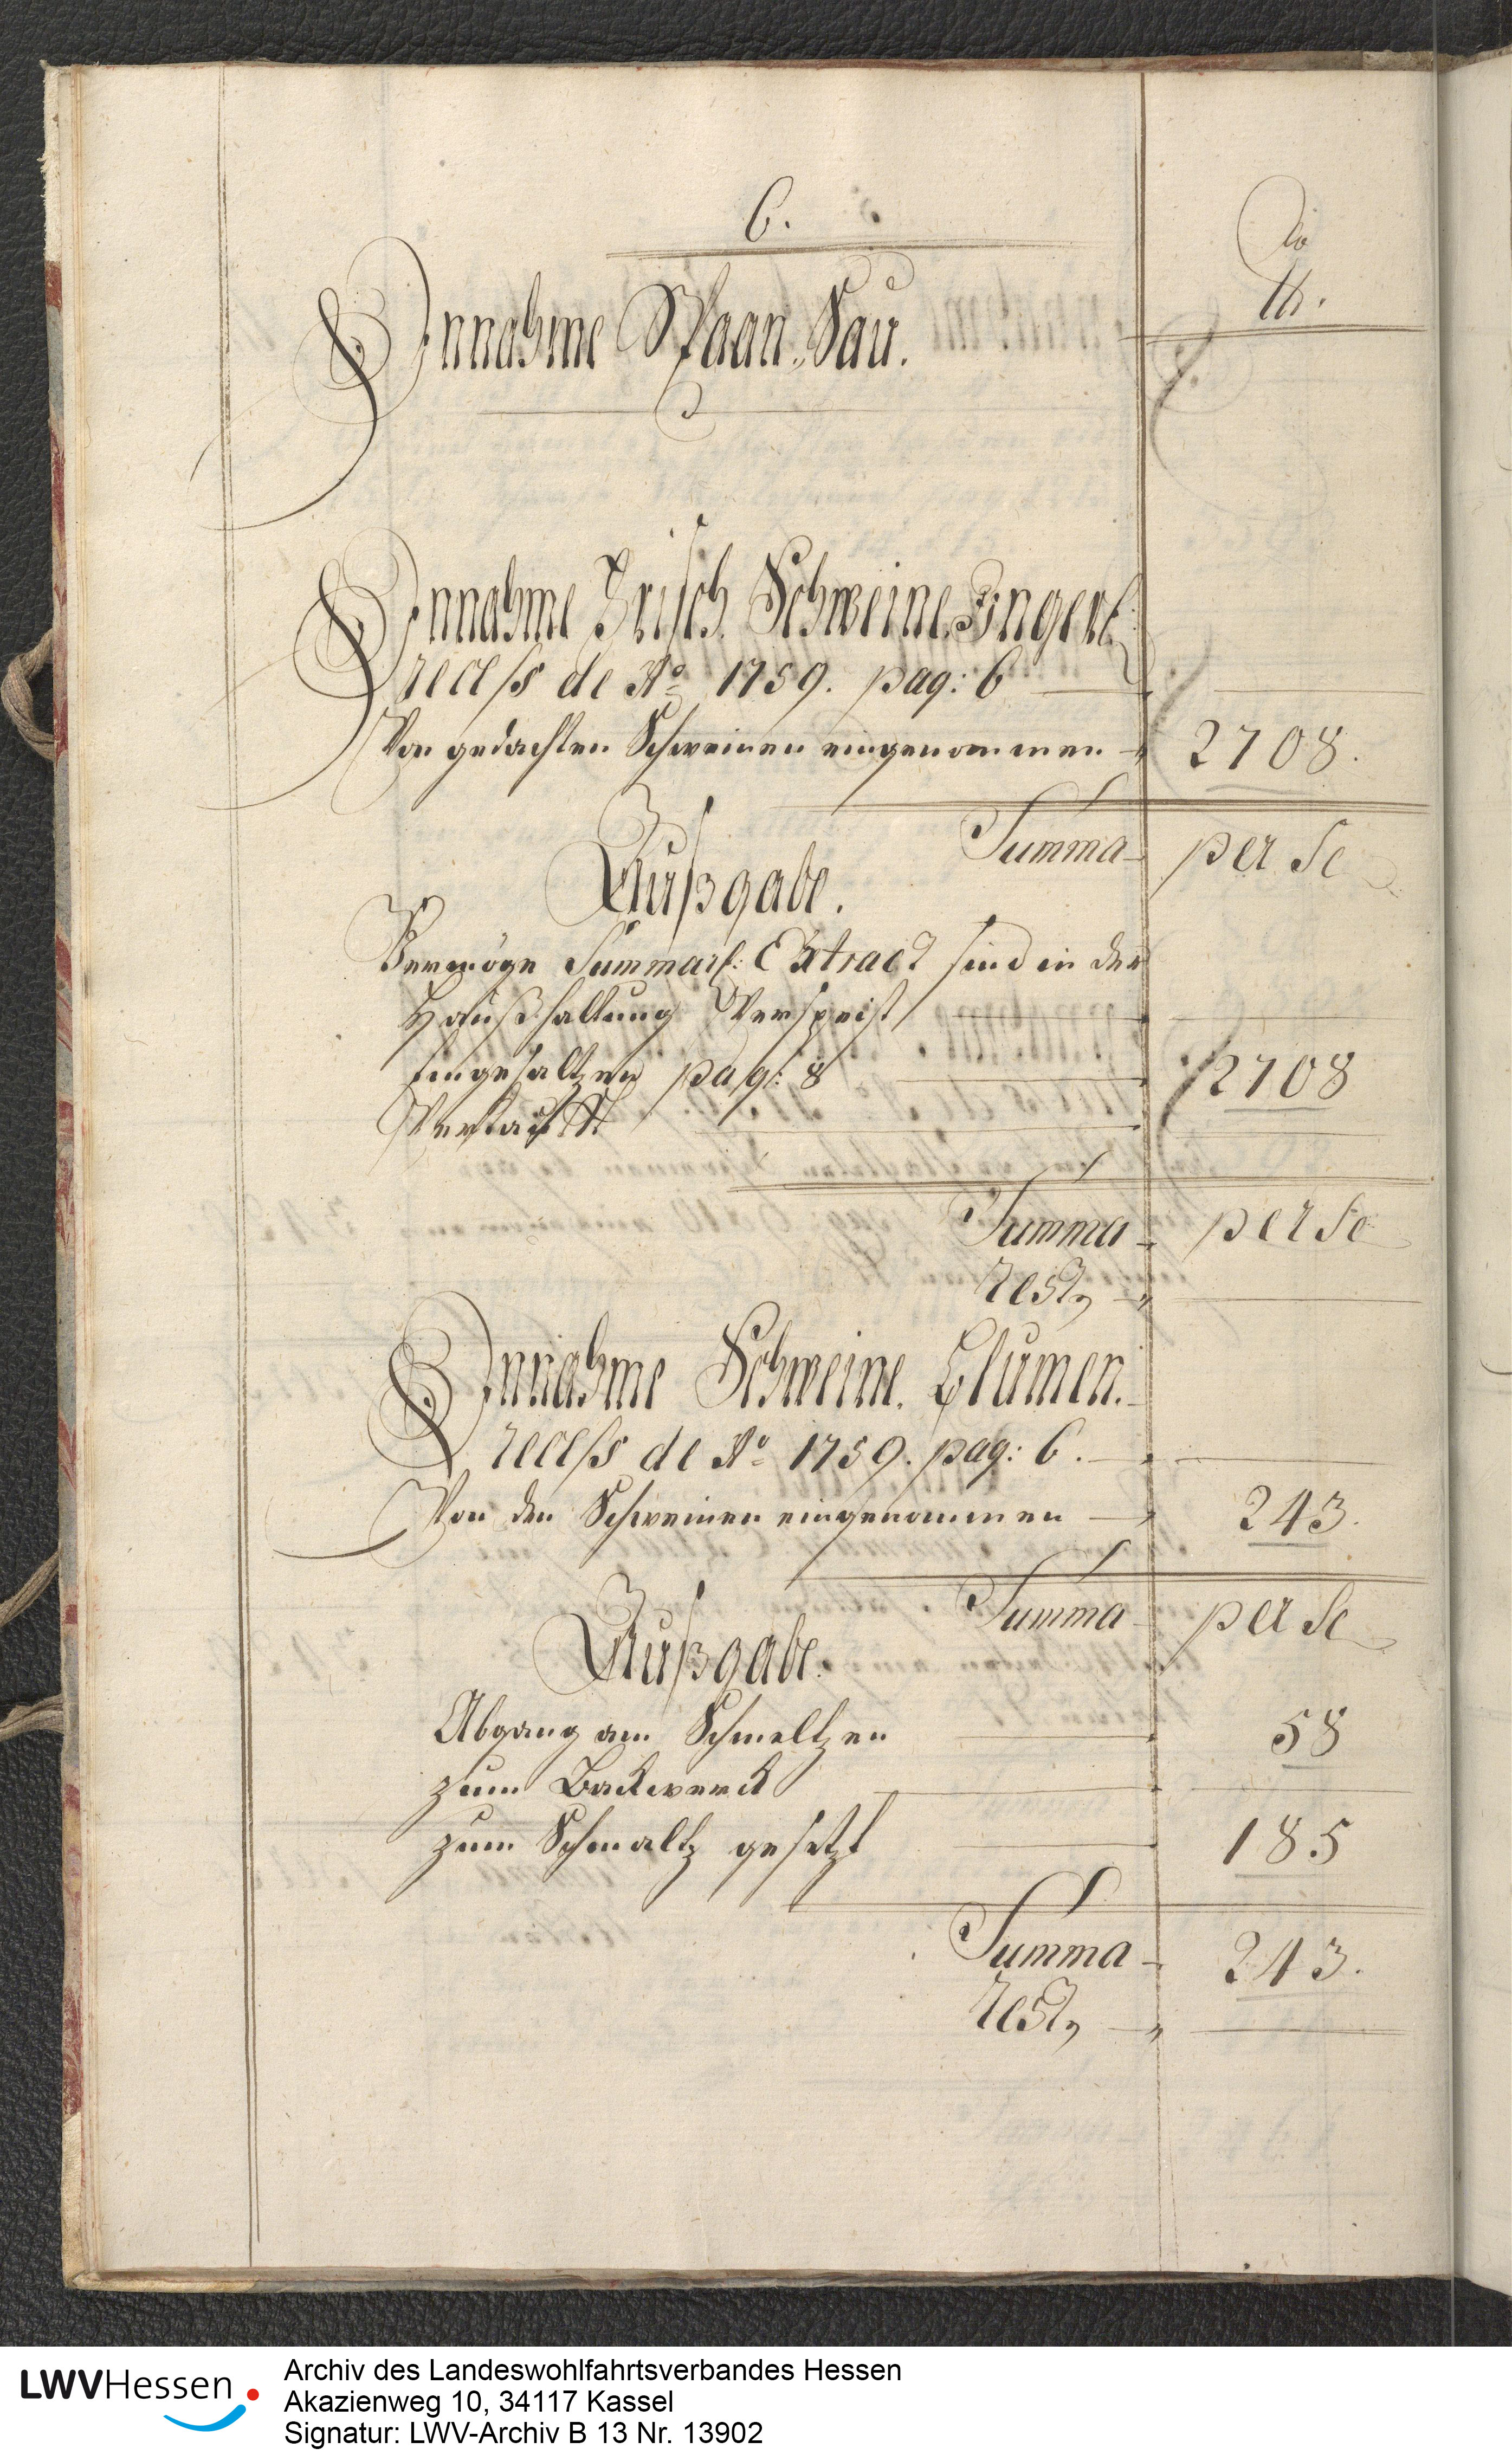 6.
℔.
Einnahme Spaan„Sau.
Einnahme Frisch. Schweine.
recess de Aō 1759. pag: 6
Von gedachten Schweinen eingenommen 2708.
Summa per Se
Außgabe.
Vermöge Summarl: Extract sind in der
Haußhaltung Verspeist
Eingesaltzen pag: 8 2708
Verkaufft
Summa per Se
rest„
Einnahme Schweine. Blumen.
recess de Aō 1759. pag: 6.
Von den Schweinen eingenommen 243.
Summa per Se
Außgabe.
Abgang am Schmeltzen 58
zum Backwerck
zum Schmaltz gesetzt 185
Summa 243.
rest„
LWVHessen
Archiv des Landeswohlfahrtsverbandes Hessen
Akazienweg 10, 34117 Kassel
Signatur: LWV-Archiv B 13 Nr. 13902